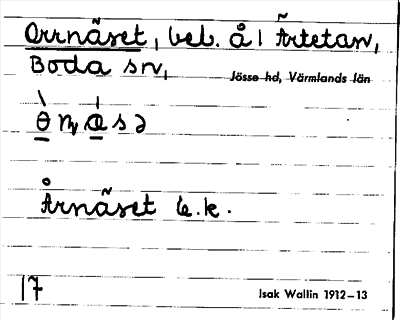 Orrnäset, bel. å l Ärtetan,
Boda sn,
Jösse hd, Värmlands län
Årnäset e.k.
17
Isak Wallin 1912–13